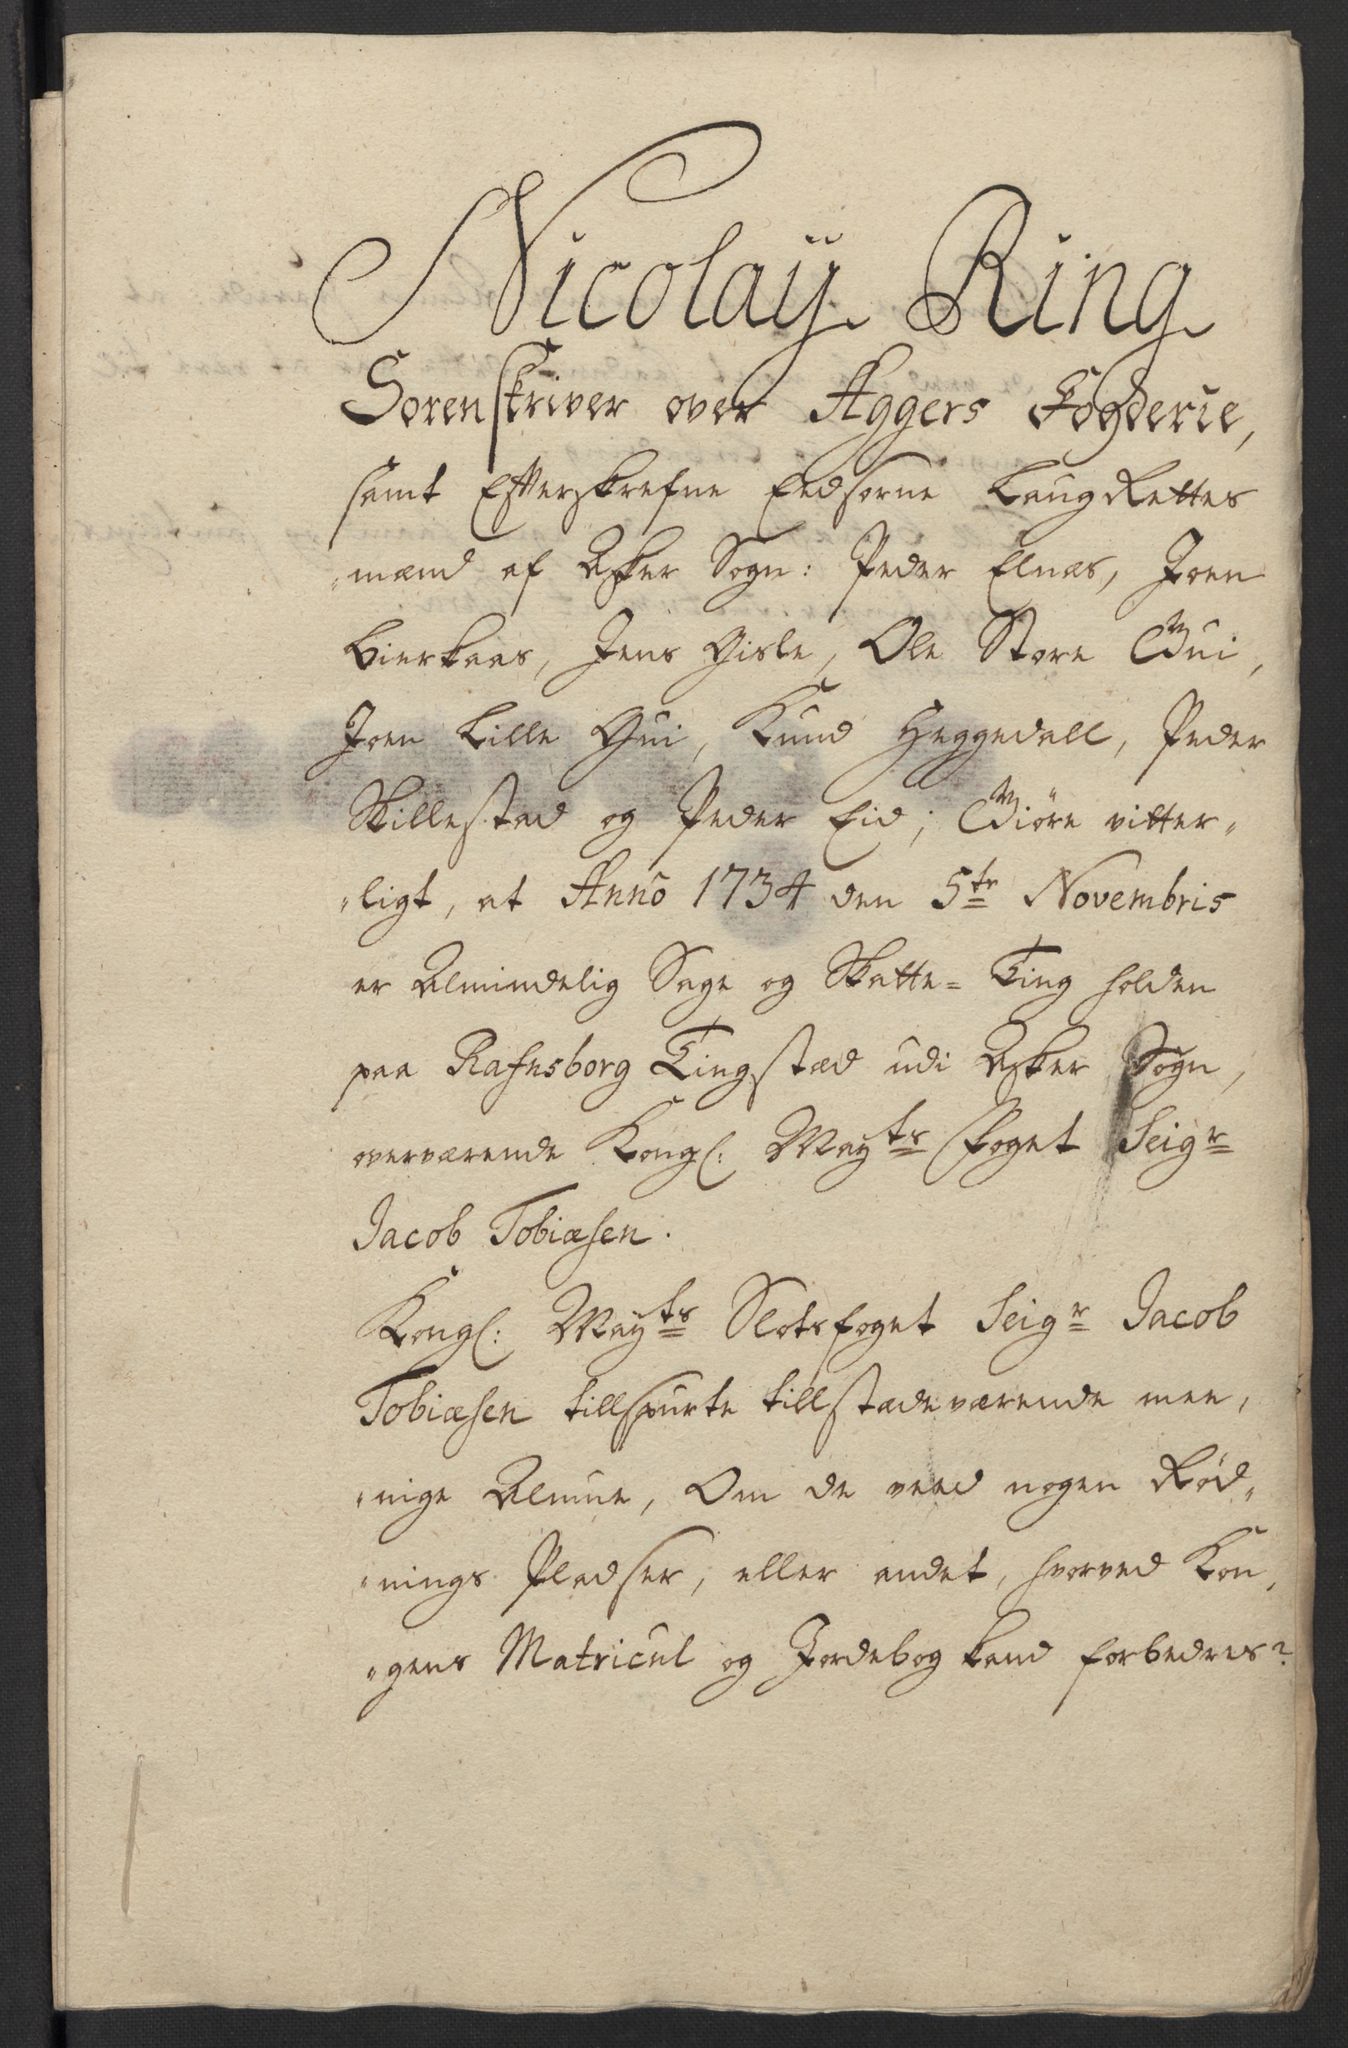 Nicolaÿ Ring
Sorenskriver over Aggers Fogderie,
samt Efterskrefne Eedsorne LaugRettes
mænd af Asker Sogn: Peder Elnæs, Joen
Bierkaas, Jens Gisle, Ole Store Gui,
Joen Lille Gui, Knud Heggedall, Peder
Skillestad og Peder Eid; Giöre vitter„
„ligt, at Anno 1734 den 5te Novembris
er Almindelig Sage og Skatte= Ting holden
paa Rafnsborg Tingstæd udi Asker Sogn,
overværende Kongl: Mayts Foget Seigr
Jacob Tobiæsen.
Kongl: Mayts Slotsfoget Seigr Jacob
Tobiæsen tillspurte tillstædeværende mee„
„nige Almue, Om de veed nogen Rød„
„nings Pladser, eller andet, hvorved Kon„
„gens Matricul og Jordebog kand forbedres?